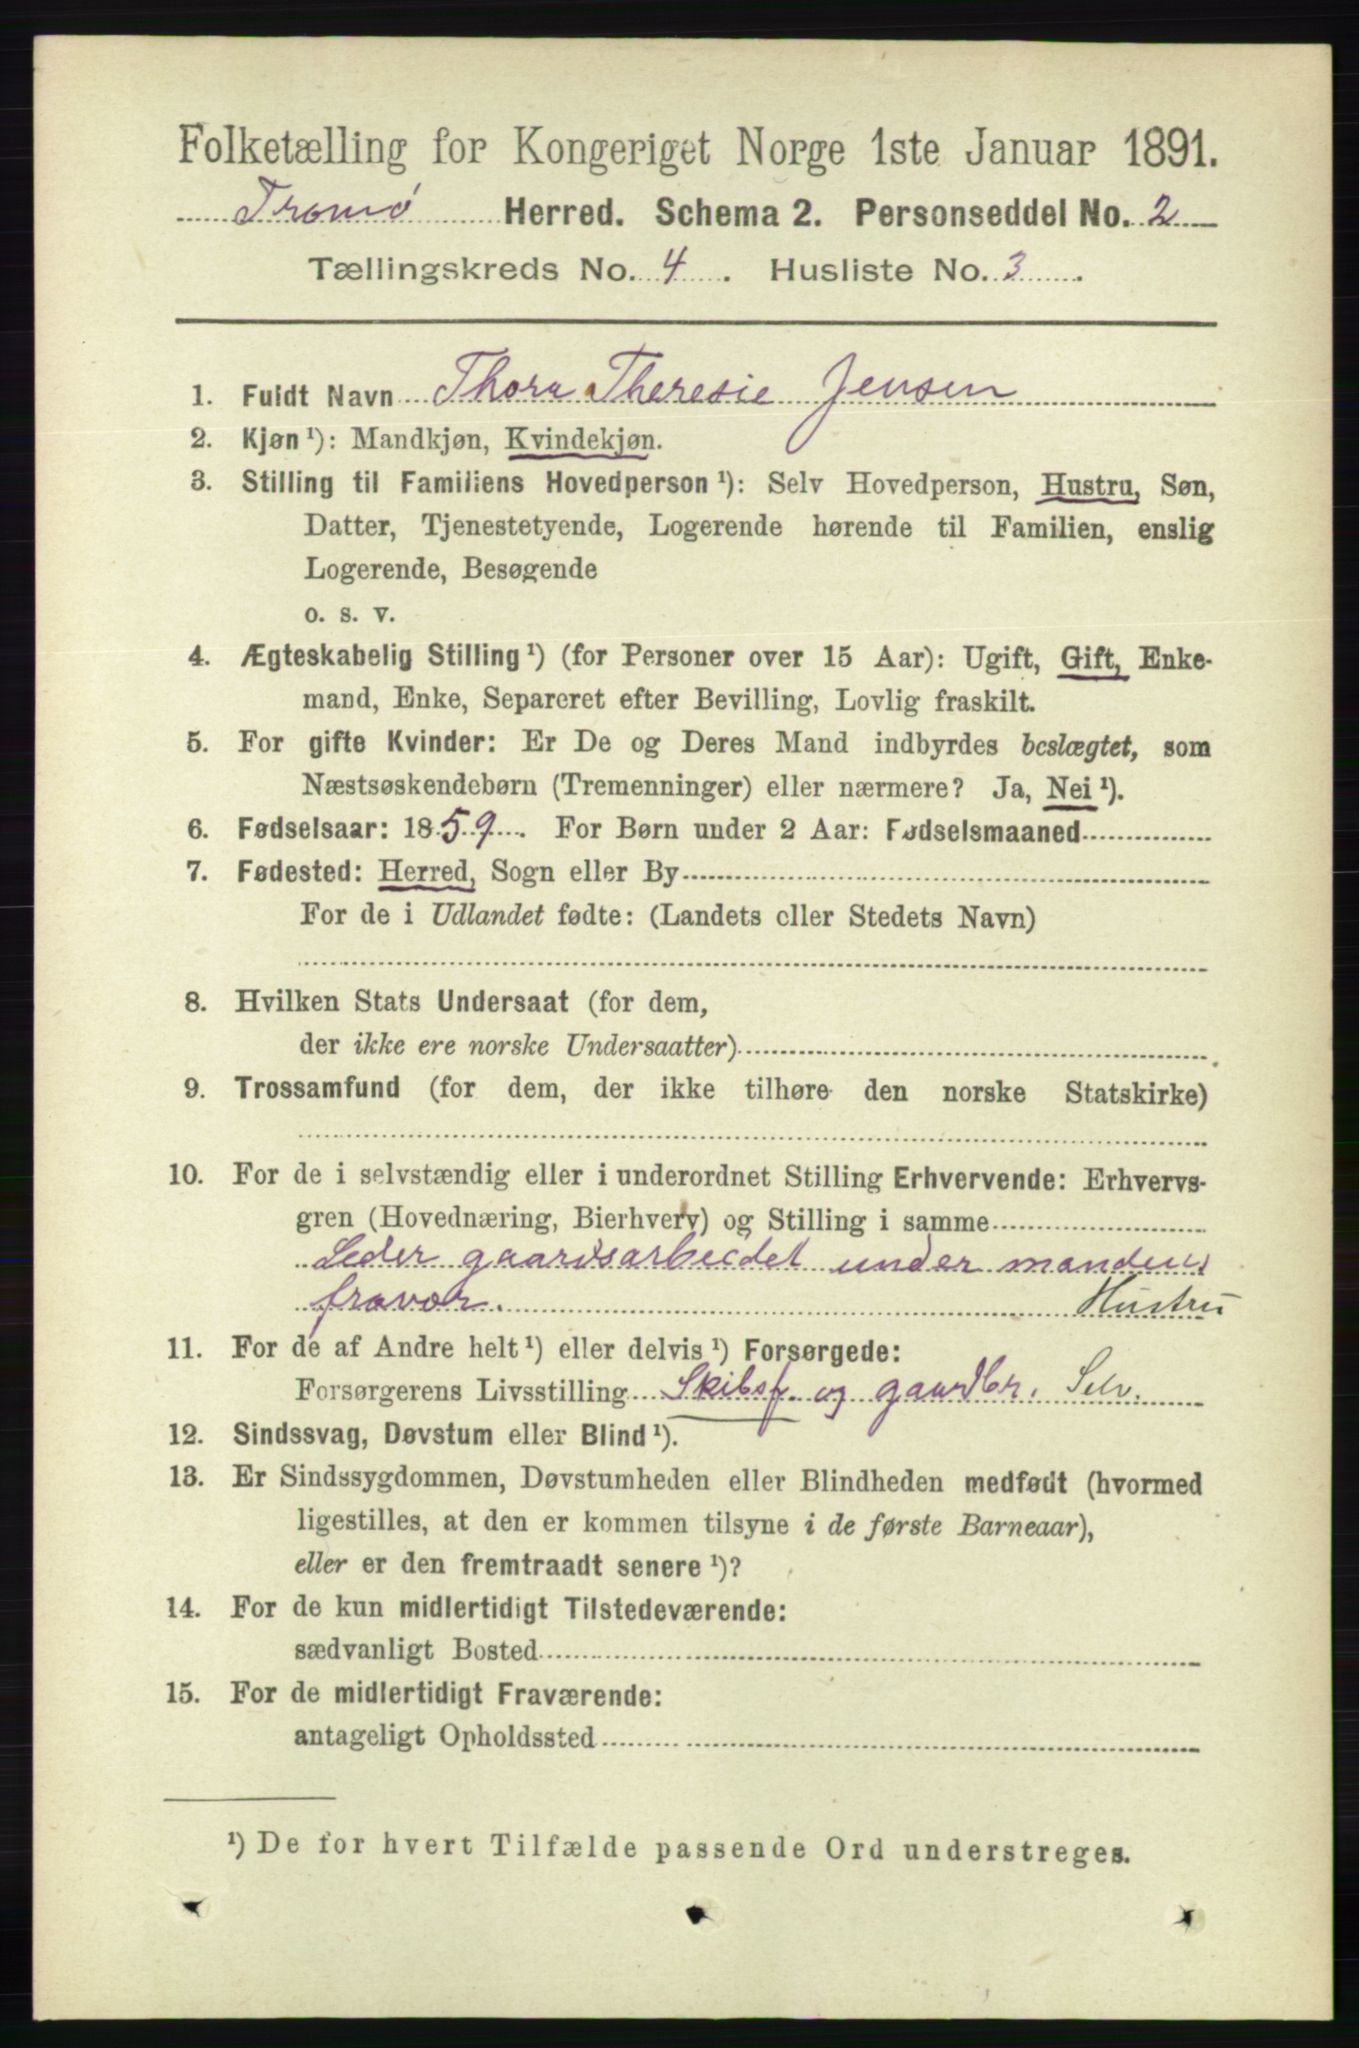 Folketælling for Kongeriget Norge 1ste Januar 1891.
Tromø Herred. Schema 2. Personseddel No. 2
Tællingskreds No. 4. Husliste No. 3.
1. Fuldt Navn Thora Theresie Jensen
2. Kjøn ¹): Mandkjøn, Kvindekjøn.
3. Stilling til Familiens Hovedperson ¹): Selv Hovedperson, Hustru, Søn,
Datter, Tjenestetyende, Logerende hørende til Familien, enslig
Logerende, Besøgende
o. s. v.
4. Ægteskabelig Stilling ¹) (for Personer over 15 Aar): Ugift, Gift, Enke-
mand, Enke, Separeret efter Bevilling, Lovlig fraskilt.
5. For gifte Kvinder: Er De og Deres Mand indbyrdes beslægtet, som
Næstsøskendebørn (Tremenninger) eller nærmere? Ja, Nei ¹).
6. Fødselsaar: 1859. For Børn under 2 Aar: Fødselsmaaned
7. Fødested: Herred, Sogn eller By
For de i Udlandet fødte: (Landets eller Stedets Navn)
8. Hvilken Stats Undersaat (for dem,
der ikke ere norske Undersaatter)
9. Trossamfund (for dem, der ikke tilhøre den norske Statskirke)
10. For de i selvstændig eller i underordnet Stilling Erhvervende: Erhvervs-
gren (Hovednæring, Bierhverv) og Stilling i samme
Leder gaardsarbeidet under mandens
fravær. Hustru
11. For de af Andre helt ¹) eller delvis ¹) Forsørgede:
Forsørgerens Livsstilling Skibsf. og gaardbr. Selv.
12. Sindssvag, Døvstum eller Blind ¹).
13. Er Sindssygdommen, Døvstumheden eller Blindheden medfødt (hvormed
ligestilles, at den er kommen tilsyne i de første Barneaar),
eller er den fremtraadt senere ¹)?
14. For de kun midlertidigt Tilstedeværende:
sædvanligt Bosted
15. For de midlertidigt Fraværende:
antageligt Opholdssted
¹) De for hvert Tilfælde passende Ord understreges.